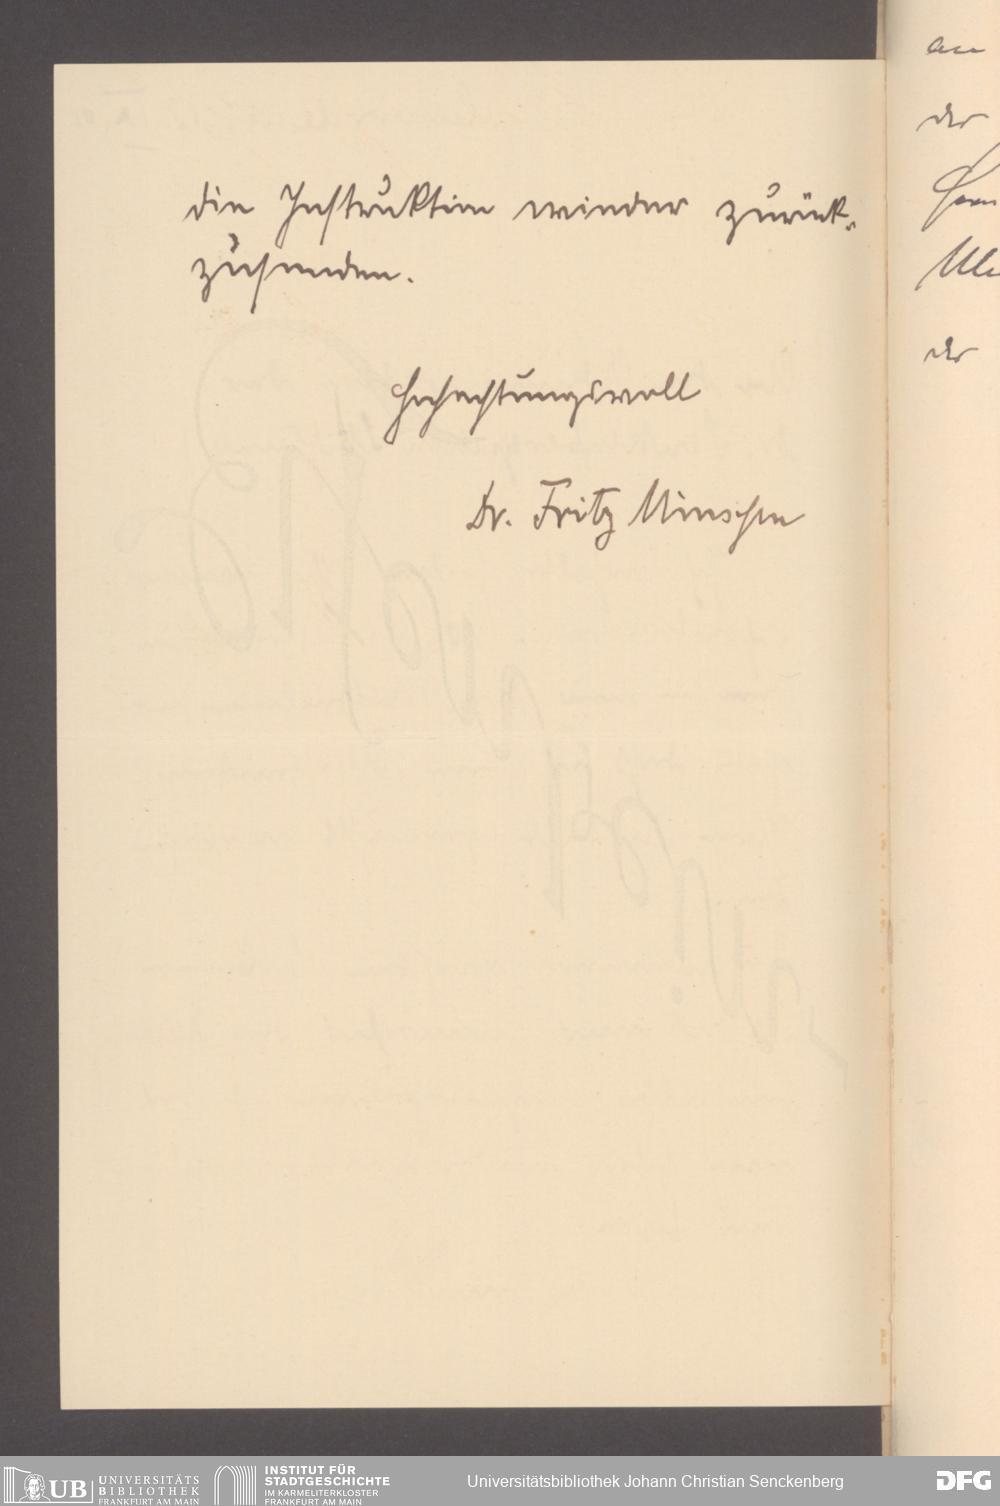 die Instruktion wieder zurück-
zusenden.
Hochachtungsvoll
Dr. Fritz
an
der
der
UB UNIVERSITÄTS
BIBLIOTHEK
FRANKFURT AM MAIN
INSTITUT FÜR
STADTGESCHICHTE
IM KARMELITERKLOSTER
FRANKFURT AM MAIN
Universitätsbibliothek Johann Christian Senckenberg
DFG